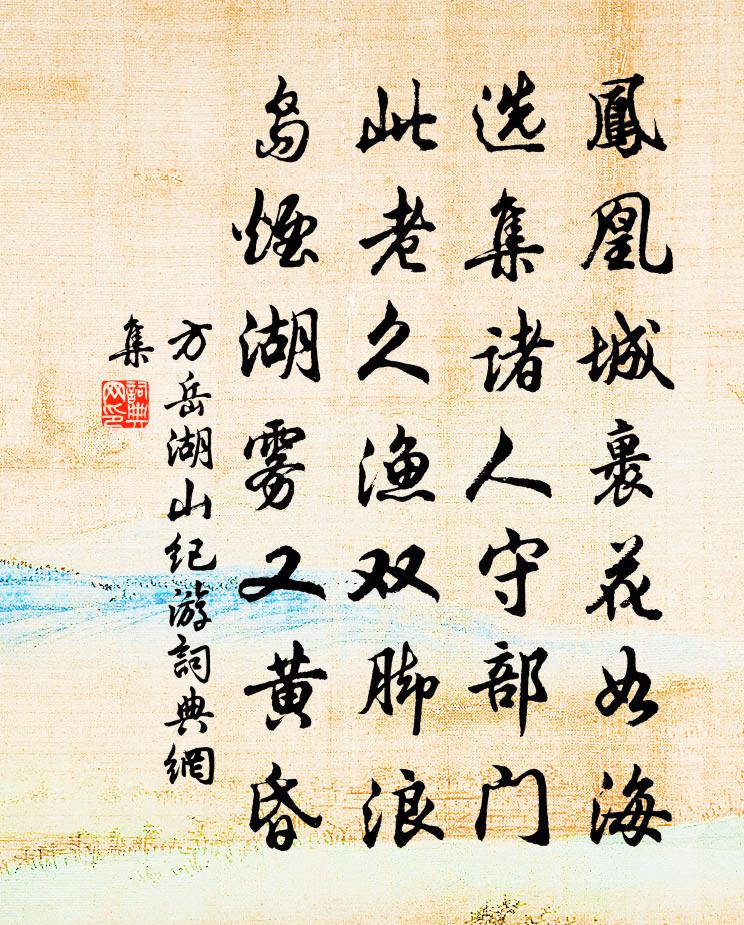 鳳凰城裏花如海
选集诸人守部门
此老久渔双脚浪
岛煙湖雾又黄昏
方岳湖山纪游詞典網
集
詞典網印